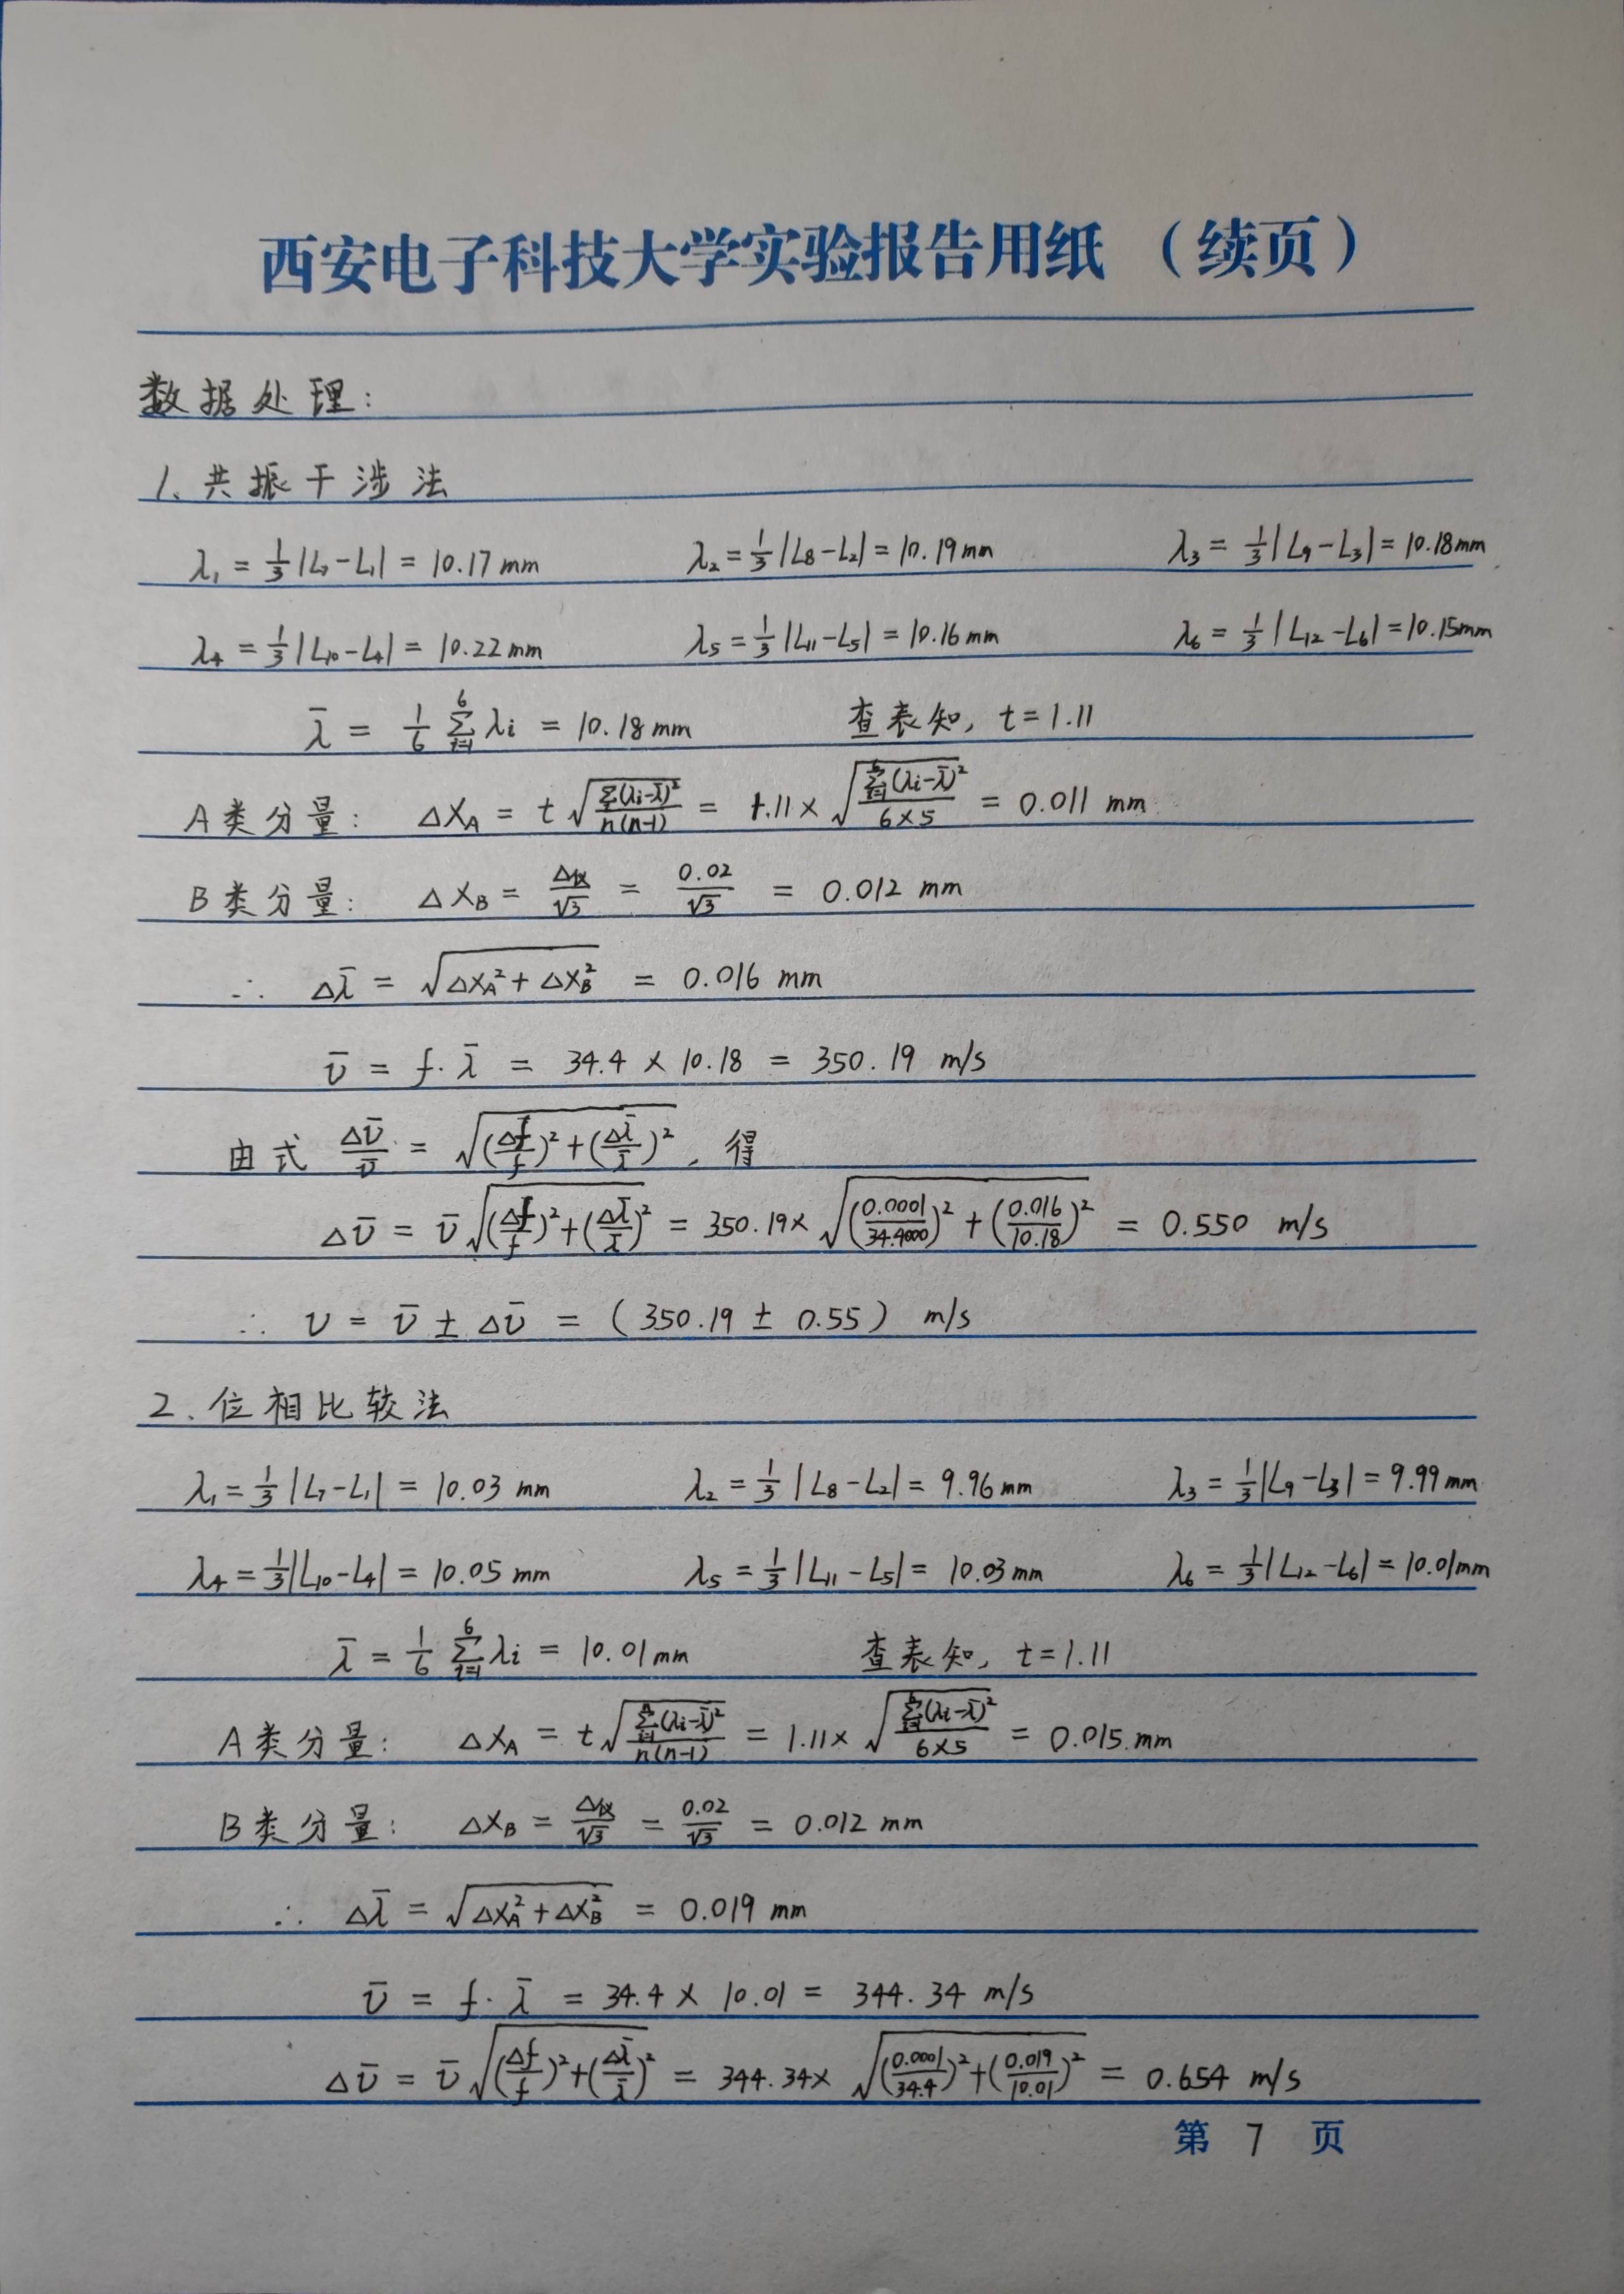 西安电子科技大学实验报告用纸 （续页）
数据处理:
1、共振干涉法
λ₁ = 1/3 |L₇-L₁| = 10.17 mm λ₂ = 1/3 |L₈-L₂| = 10.19 mm λ₃ = 1/3 |L₉-L₃| = 10.18 mm
λ₄ = 1/3 |L₁₀-L₄| = 10.22 mm λ₅ = 1/3 |L₁₁-L₅| = 10.16 mm λ₆ = 1/3 |L₁₂-L₆| = 10.15mm
λ̄ = 1/6 ∑_{i=1}^{6} λi = 10.18 mm 查表知, t=1.11
A类分量: ΔX_A = t √(∑(λi-λ̄)²/n(n-1)) = 1.11× √(∑_{i=1}^{6}(λi-λ̄)²/6×5) = 0.011 mm
B类分量: ΔX_B = Δ仪/√3 = 0.02/√3 = 0.012 mm
∴ Δλ̄ = √(ΔX_A²+ΔX_B²) = 0.016 mm
ῡ = f·λ̄ = 34.4 × 10.18 = 350.19 m/s
由式 Δῡ/ῡ = √((Δf/f)²+(Δλ̄/λ̄)²), 得
Δῡ = ῡ√((Δf/f)²+(Δλ̄/λ̄)²) = 350.19× √((0.0001/34.4000)²+(0.016/10.18)²) = 0.550 m/s
∴ υ = ῡ ± Δῡ = (350.19 ± 0.55) m/s
2.位相比较法
λ₁ = 1/3 |L₇-L₁| = 10.03 mm λ₂ = 1/3 |L₈-L₂| = 9.96 mm λ₃ = 1/3 |L₉-L₃| = 9.99 mm
λ₄ = 1/3 |L₁₀-L₄| = 10.05 mm λ₅ = 1/3 |L₁₁-L₅| = 10.03 mm λ₆ = 1/3 |L₁₂-L₆| = 10.01mm
λ̄ = 1/6 ∑_{i=1}^{6} λi = 10.01 mm 查表知, t=1.11
A类分量: ΔX_A = t √(∑_{i=1}^{n}(λi-λ̄)²/n(n-1)) = 1.11× √(∑_{i=1}^{6}(λi-λ̄)²/6×5) = 0.015 mm
B类分量: ΔX_B = Δ仪/√3 = 0.02/√3 = 0.012 mm
∴ Δλ̄ = √(ΔX_A²+ΔX_B²) = 0.019 mm
ῡ = f·λ̄ = 34.4 × 10.01 = 344.34 m/s
Δῡ = ῡ√((Δf/f)²+(Δλ̄/λ̄)²) = 344.34× √((0.0001/34.4)²+(0.019/10.01)²) = 0.654 m/s
第 7 页